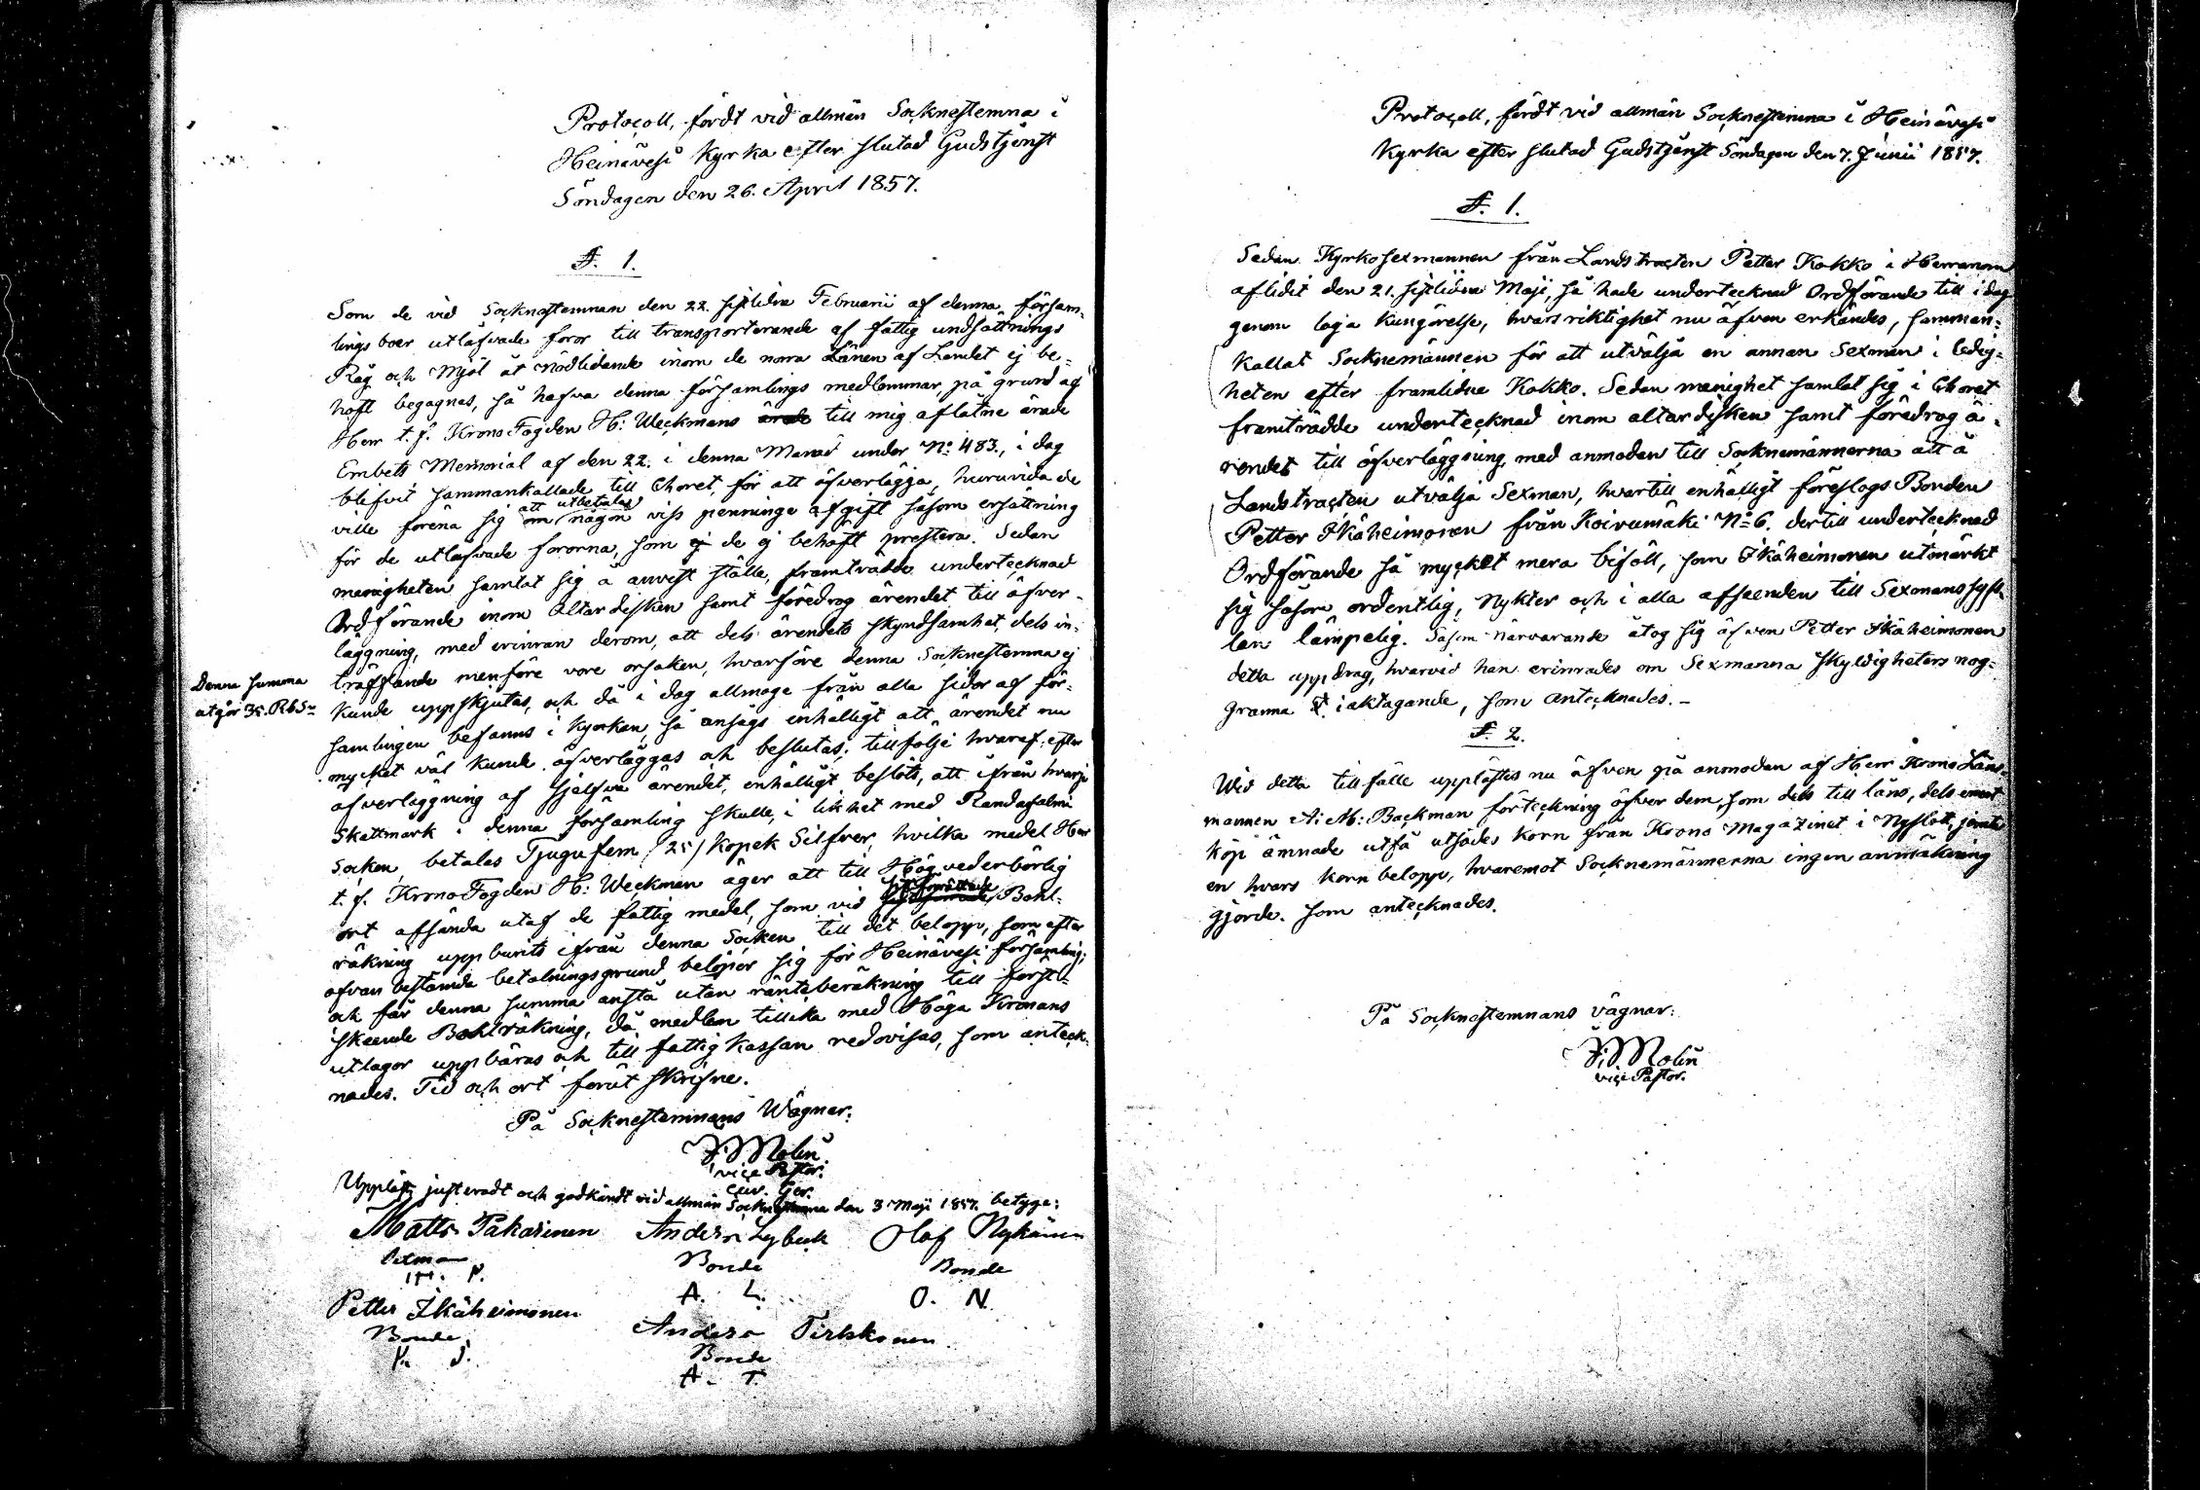 Protocoll, fördt vid allmän Socknestemna i
Heinävesi Kyrka efter slutad Gudstjenst
Söndagen den 26. April 1857.
§. 1.
Som de vid Socknestemnan den 22. sistlidne Februarii af denna försam-
lings boer utläfvade foror till transporterande af fattig undsättnings
Råg och Mjöl åt nödlidande inom de norra Länen af Landet ej be-
höft begagnas, så hafva denna församlings medlemmar, på grund af
Herr t. f. Krono Fogden H: Weckmans till mig aflåtne ärade
Embets Memorial af den 22. i denna Månad under No: 483., i dag
blifvit sammankallade till Choret, för att öfverlägga, huruvida de
ville förena sig om att utbetala någon viss penninge afgift såsom ersättning
för de utläfvade fororna, som ej de ej behöft prestera. Sedan
menigheten samlat sig å anvist ställe, framträdde undertecknad
Ordförande inom Altardisken samt föredrog ärendet till öfver-
läggning, med erinran derom, att dels ärendets skyndsamhet, dels in-
träffande menföre vore orsaken, hvarföre denna Socknestemna ej
kunde uppskjutas, och då i dag allmoge från alla sidor af för-
samlingen befanns i kyrkan, så ansågs enhälligt att ärendet nu
mycket väl kunde öfverläggas och beslutas; tillfölje hvaraf, efter
öfverläggning af sjelfva ärendet, enhälligt beslöts, att ifrån hvarje
Skattmark i denna församling skulle, i likhet med Randasalmi
Socken, betalas Tjugufem /25/ Kopek Silfver, hvilka medel Herr
t. f. Krono Fogden H: Weckman äger att till Hög vederbörlig
ort afsända utaf de fattig medel, som vid Bohl-
räkning uppburits ifrån denna Socken till det belopp, som efter
ofvan bestämda betalningsgrund belöper sig för Heinävesi församling;
och får denna summa anstå utan ränteberäkning till först-
skeende Bohlräkning, då medlen tillika med Höga Kronans
utlagor uppbäras och till fattig Kassan redovisas, som anteck-
nades. Tid och ort förut skrifne.
Denna summa
utgör 35. Rb Sr
På Socknestemnans Wägnar:
J: Molin
vice Pastor.
Uppläst, justeradt och godkändt vid allmän Socknestemna den 3 Maji 1857. betyga:
Matts Pakarinen Anders Lybeck Olof Nykänen
Sexman Bonde Bonde
M. P. A. L. O. N.
Petter Ikäheimonen Anders Tirkkonen
Bonde Bonde
P. I. A. T.
Protocoll, fördt vid allmän Socknestemna i Heinävesi
Kyrka efter slutad Gudstjenst Söndagen den 7. Junii 1857.
§. 1.
Sedan Kyrkosexmannen från Landstracten Petter Kokko i Herranom
aflidit den 21. sistlidne Maji, så hade undertecknad Ordförande till i dag
genom laga kungörelse, hvars riktighet nu äfven erkändes, samman-
kallat Socknemännen för att utvälja en annan Sexman i ledig-
heten efter framlidne Kokko. Sedan menighet samlat sig i Choret
framträdde undertecknad inom altardisken samt föredrog ä-
rendet till öfverläggning med anmodan till Socknemännerna att å
Landstracten utvälja Sexman, hvartill enhälligt föreslogs Bonden
Petter Ikäheimonen från Koivumäki No 6. dertill undertecknad
Ordförande så mycket mera biföll, som Ikäheimonen utmärkt
sig såsom ordentlig, nykter och i alla afseenden till Sexmanssyss-
lan lämpelig. Såsom närvarande åtog sig äfven Petter Ikäheimonen
detta uppdrag, hvarvid han erinrades om Sexmanna skyldigheters nog-
granna iakttagande, som antecknades.-
§. 2.
Wid detta tillfälle upplästes nu äfven på anmodan af Herr Krono Läns-
mannen A: M: Backman förteckning öfver dem, som dels till låns, dels emot
köp ämnade utfå utsädes korn från Krono Magazinet i Nyslott, jemte
en hvars korn belopp, hvaremot Socknemännerna ingen anmärkning
gjorde. som antecknades.
På Socknestemnans vägnar:
J: Molin
vice Pastor.